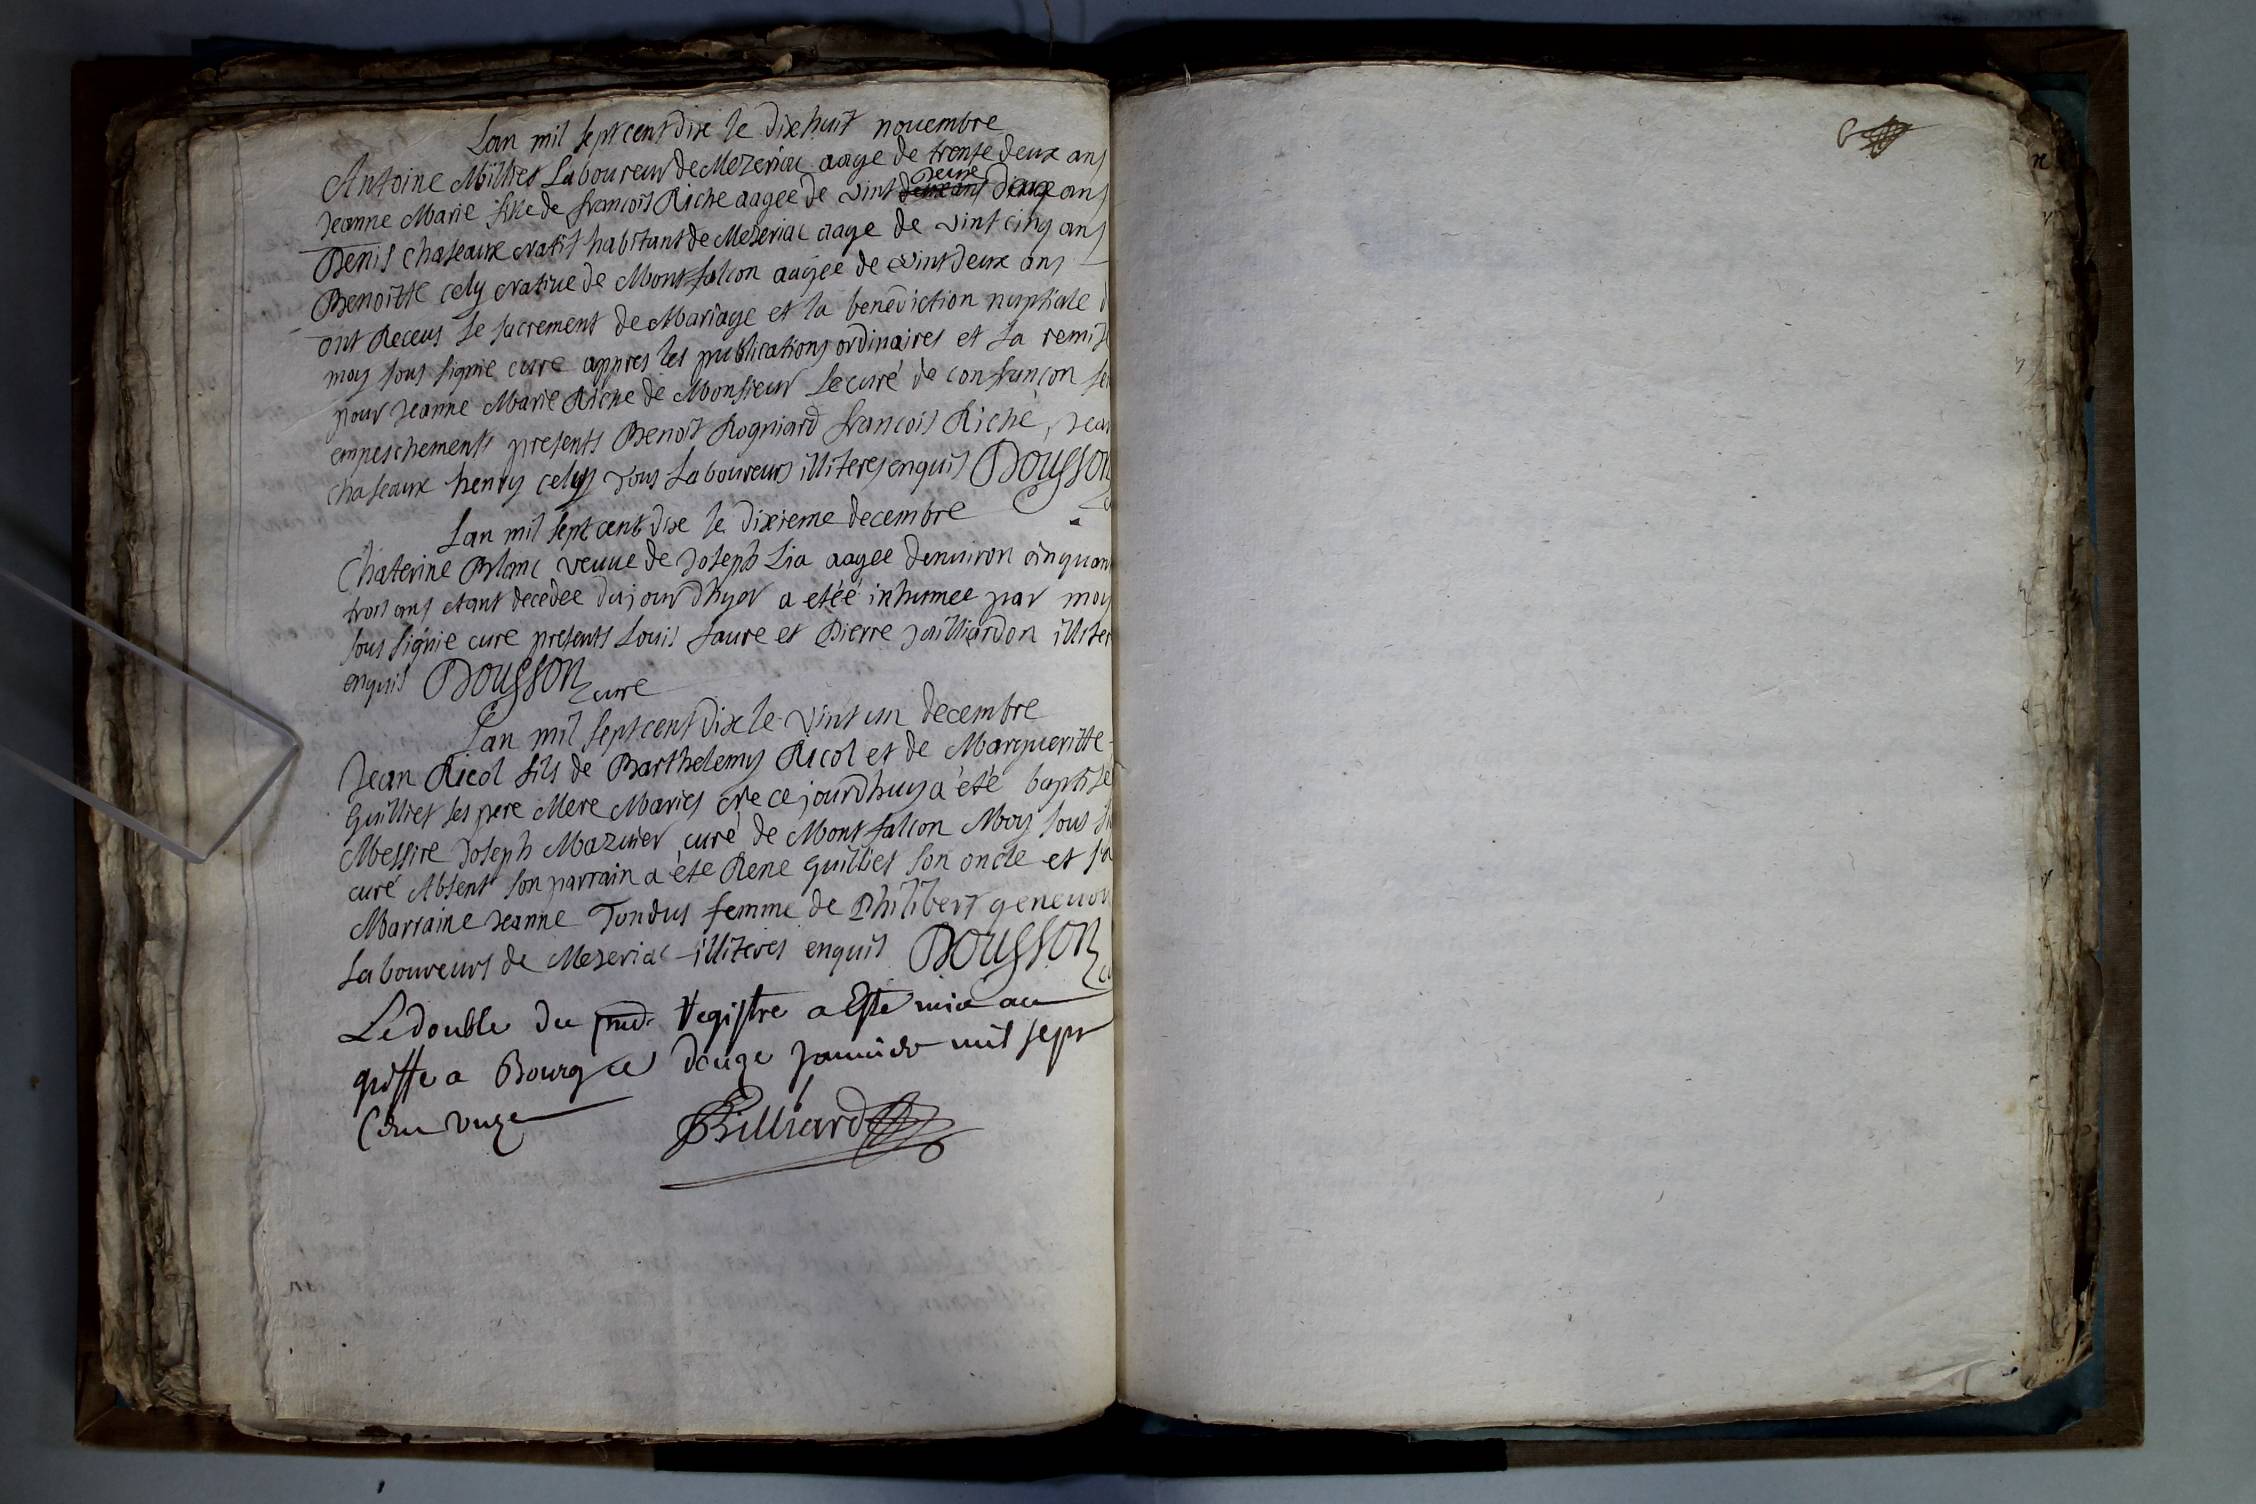 Lan mil sept cent dix le dixhuit novembre
Antoine Milliet Laboureur de Mezeriac aage de trente deux ans
Jeanne Marie fille de francois Riche aagee de vint deux ans
Denis Chaseaux natif habitant de Mezeriac aage de vint cinq ans
Benoitte cely native de Montfalcon aagee de vint deux ans
ont Receus le sacrement de Mariage et la benediction nuptiale d
moy sous signie cure appres les publications ordinaires et la remise
pour Jeanne Marie Riche de Monsieur Le curé de confrançon
empeschements presents Benoit Rogniard francois Riche, Jean
chaseaux henry cely tous Laboureurs illiteres enquis Dousson
Lan mil sept cent dix le dixieme decembre
Chaterine Blanc veuue de Joseph Lia aagee denuiron cinquan
trois ans etant decedee du jour dhyer a etéé inhumee par moy
sous signie cure presents Louis faure et Pierre Juilliardon illiter
enquis Dousson cure
Lan mil sept cent dix le vint un decembre
Jean Ricol fils de Barthelemy Ricol et de Margueritte
Guilliet ses pere Mere Maries ne ce jourdhuy a été baptise
Messire Joseph Mazuier curé de Montfalcon Moy sous si
curé Absent son parrain a été Rene Guilliet son oncle et sa
Marraine Jeanne Tondus femme de Philibert geneuou
Laboureurs de Mezeriac illiteres enquis Dousson
Le double du pnt. Registre a Este mis au
greffe a Bourg ce douze januier mil sept
Cent unze
Billiard